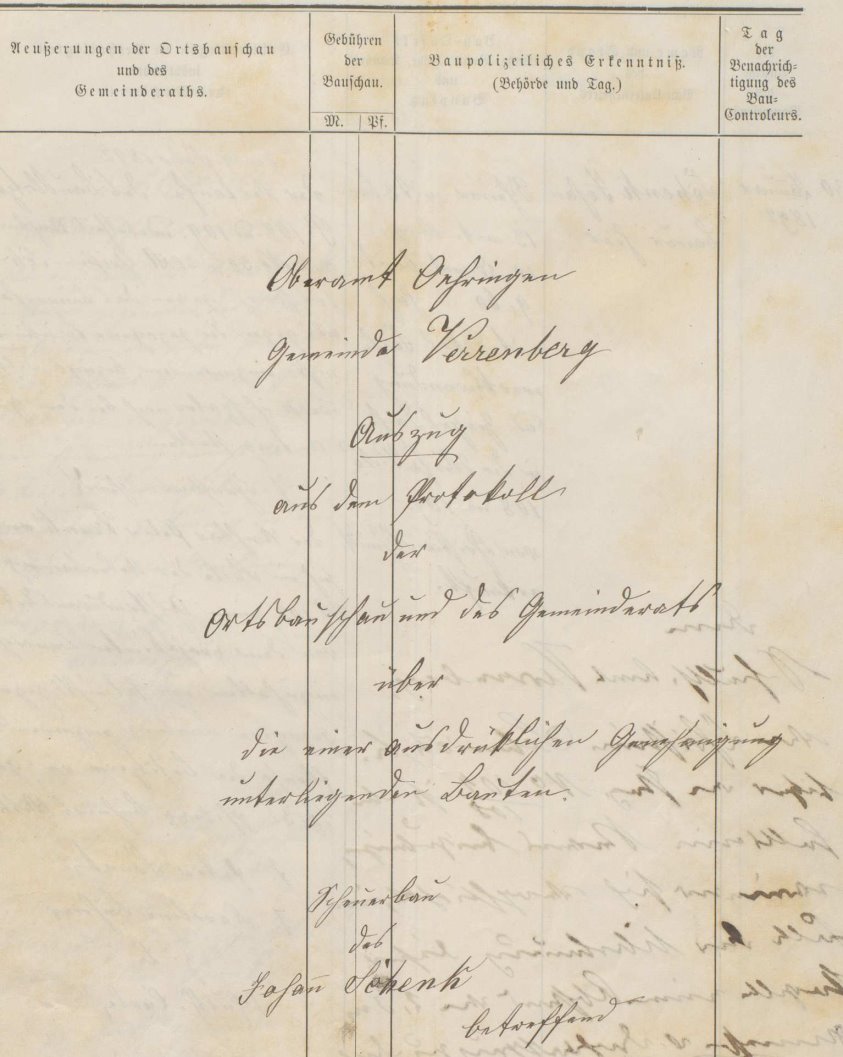 Aeußerungen der Ortsbauschau
und des
Gemeinderaths.
Gebühren
der
Bauschau.
M. Pf.
Baupolizeiliches Erkenntniß.
(Behörde und Tag.)
Tag
der
Benachrich-
tigung des
Bau-
Controleurs.
Oberamt Oehringen
Gemeinde Verrenberg
Auszug
aus dem Protokoll
der
Ortsbauschau und des Gemeinderats
über
die einer ausdrüklichen Genehmigung
unterliegenden Bauten.
Scheuerbau
des
Johann Schenk
betreffend